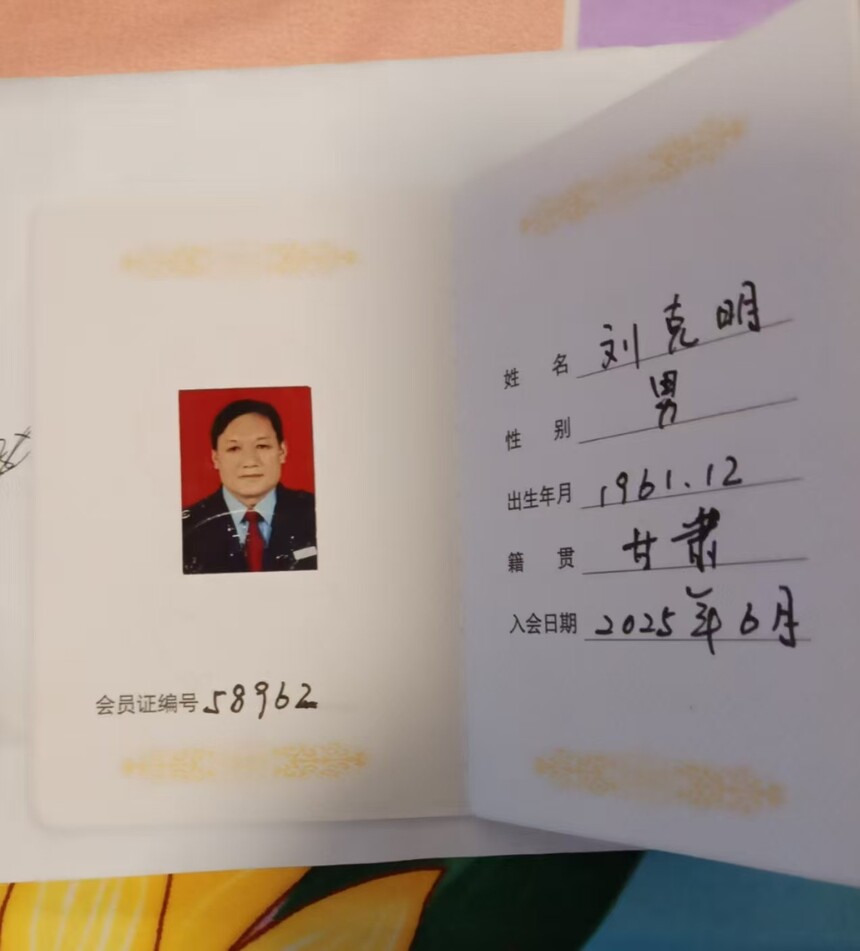 会员证编号 58962
姓 名 刘克明
性 别 男
出生年月 1961.12
籍 贯 甘肃
入会日期 2025年6月